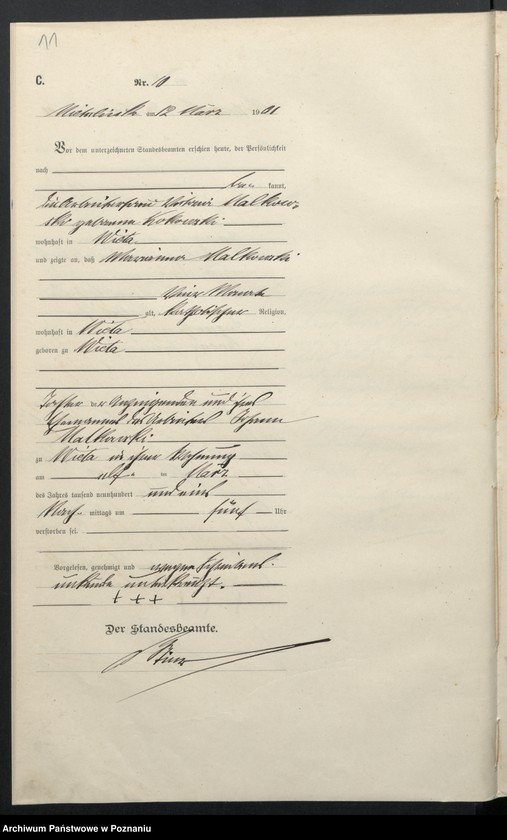 11
C.
Nr. 10
am 12 März 1901
Vor dem unterzeichneten Standesbeamten erschien heute, der Persönlichkeit
nach
be kannt,
die Arbeiterfrau Malkow-
ski geborene Kokowski
wohnhaft in Wieta
und zeigte an, daß Marianna Malkowski
vier Monate
alt, katholischer Religion,
wohnhaft in Wieta
geboren zu Wieta
Tochter der Anzeigenden und ihres
Ehemannes des Arbeiters Johann
Malkowski
zu Wieta in ihrer Wohnung
am elf ten März
des Jahres tausend neunhundert und eins
Nach mittags um fünf Uhr
verstorben sei.
Vorgelesen, genehmigt und wegen Schreibens-
unkunde unterkreuzt.
+ + +
Der Standesbeamte.
Archiwum Państwowe w Poznaniu